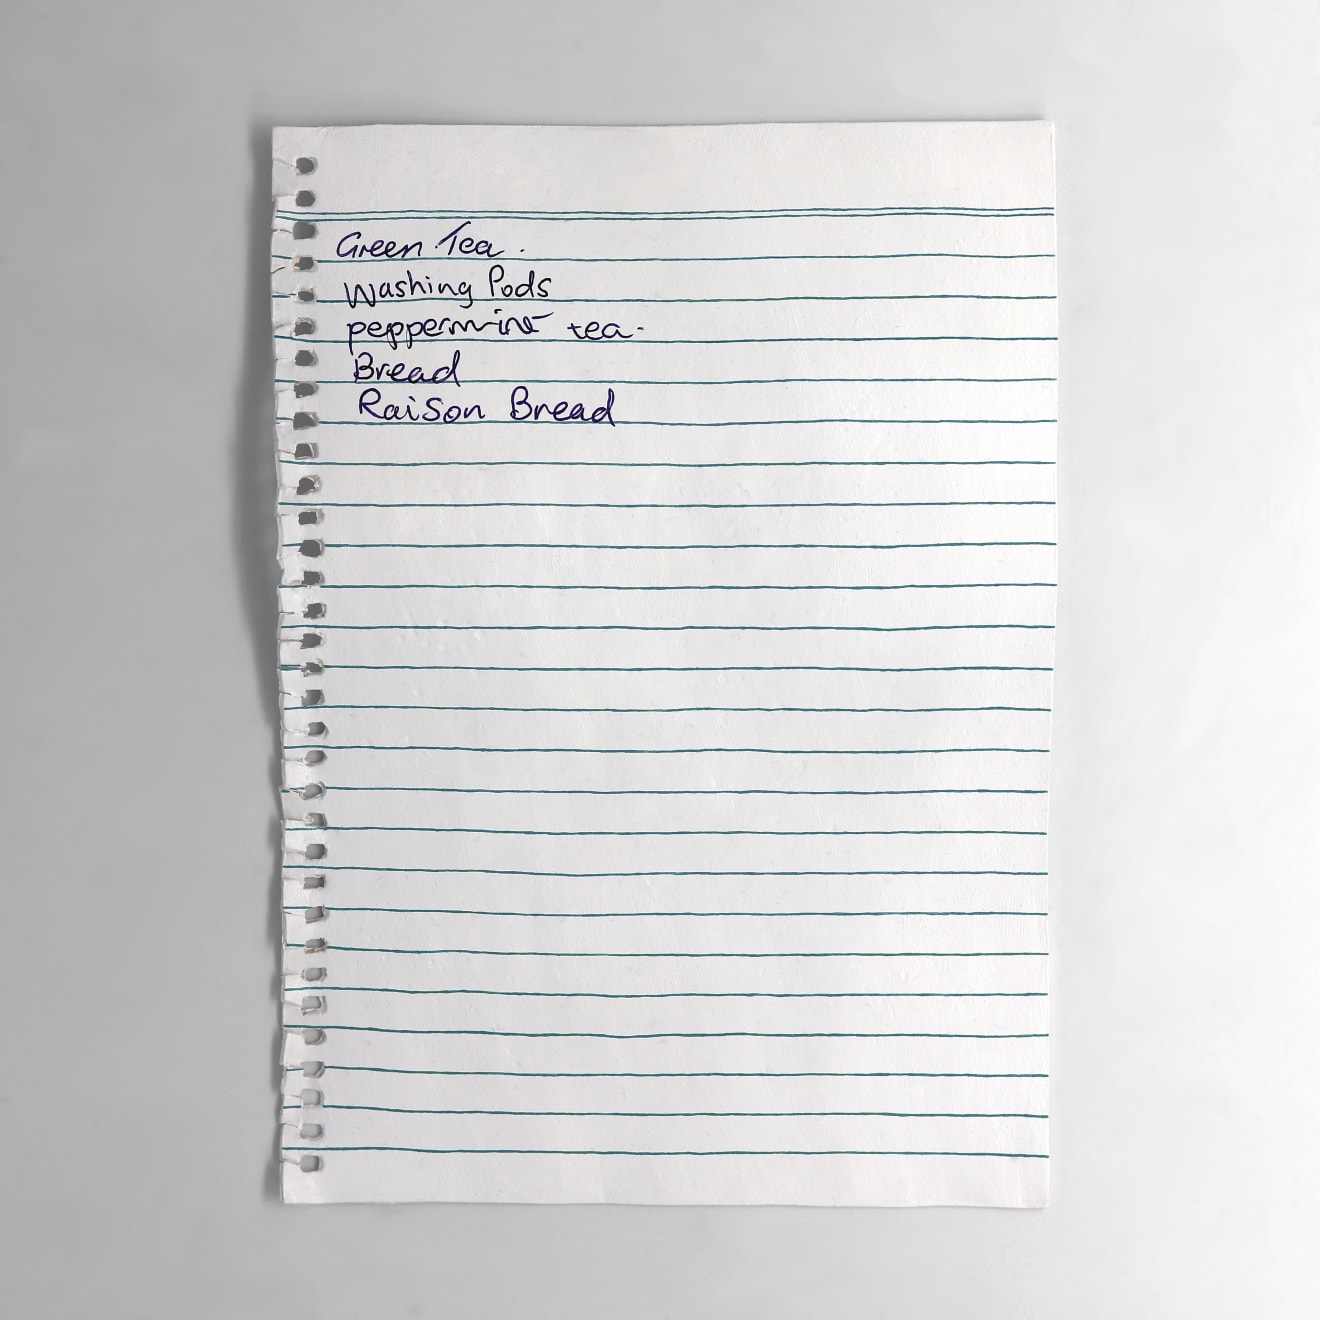 Green Tea.
Washing Pods
peppermint tea.
Bread
Raison Bread